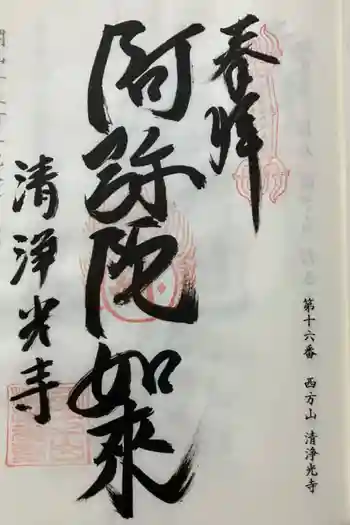 奉拝
阿弥陀如來
清浄光寺
第十六番 西方山 清浄光寺